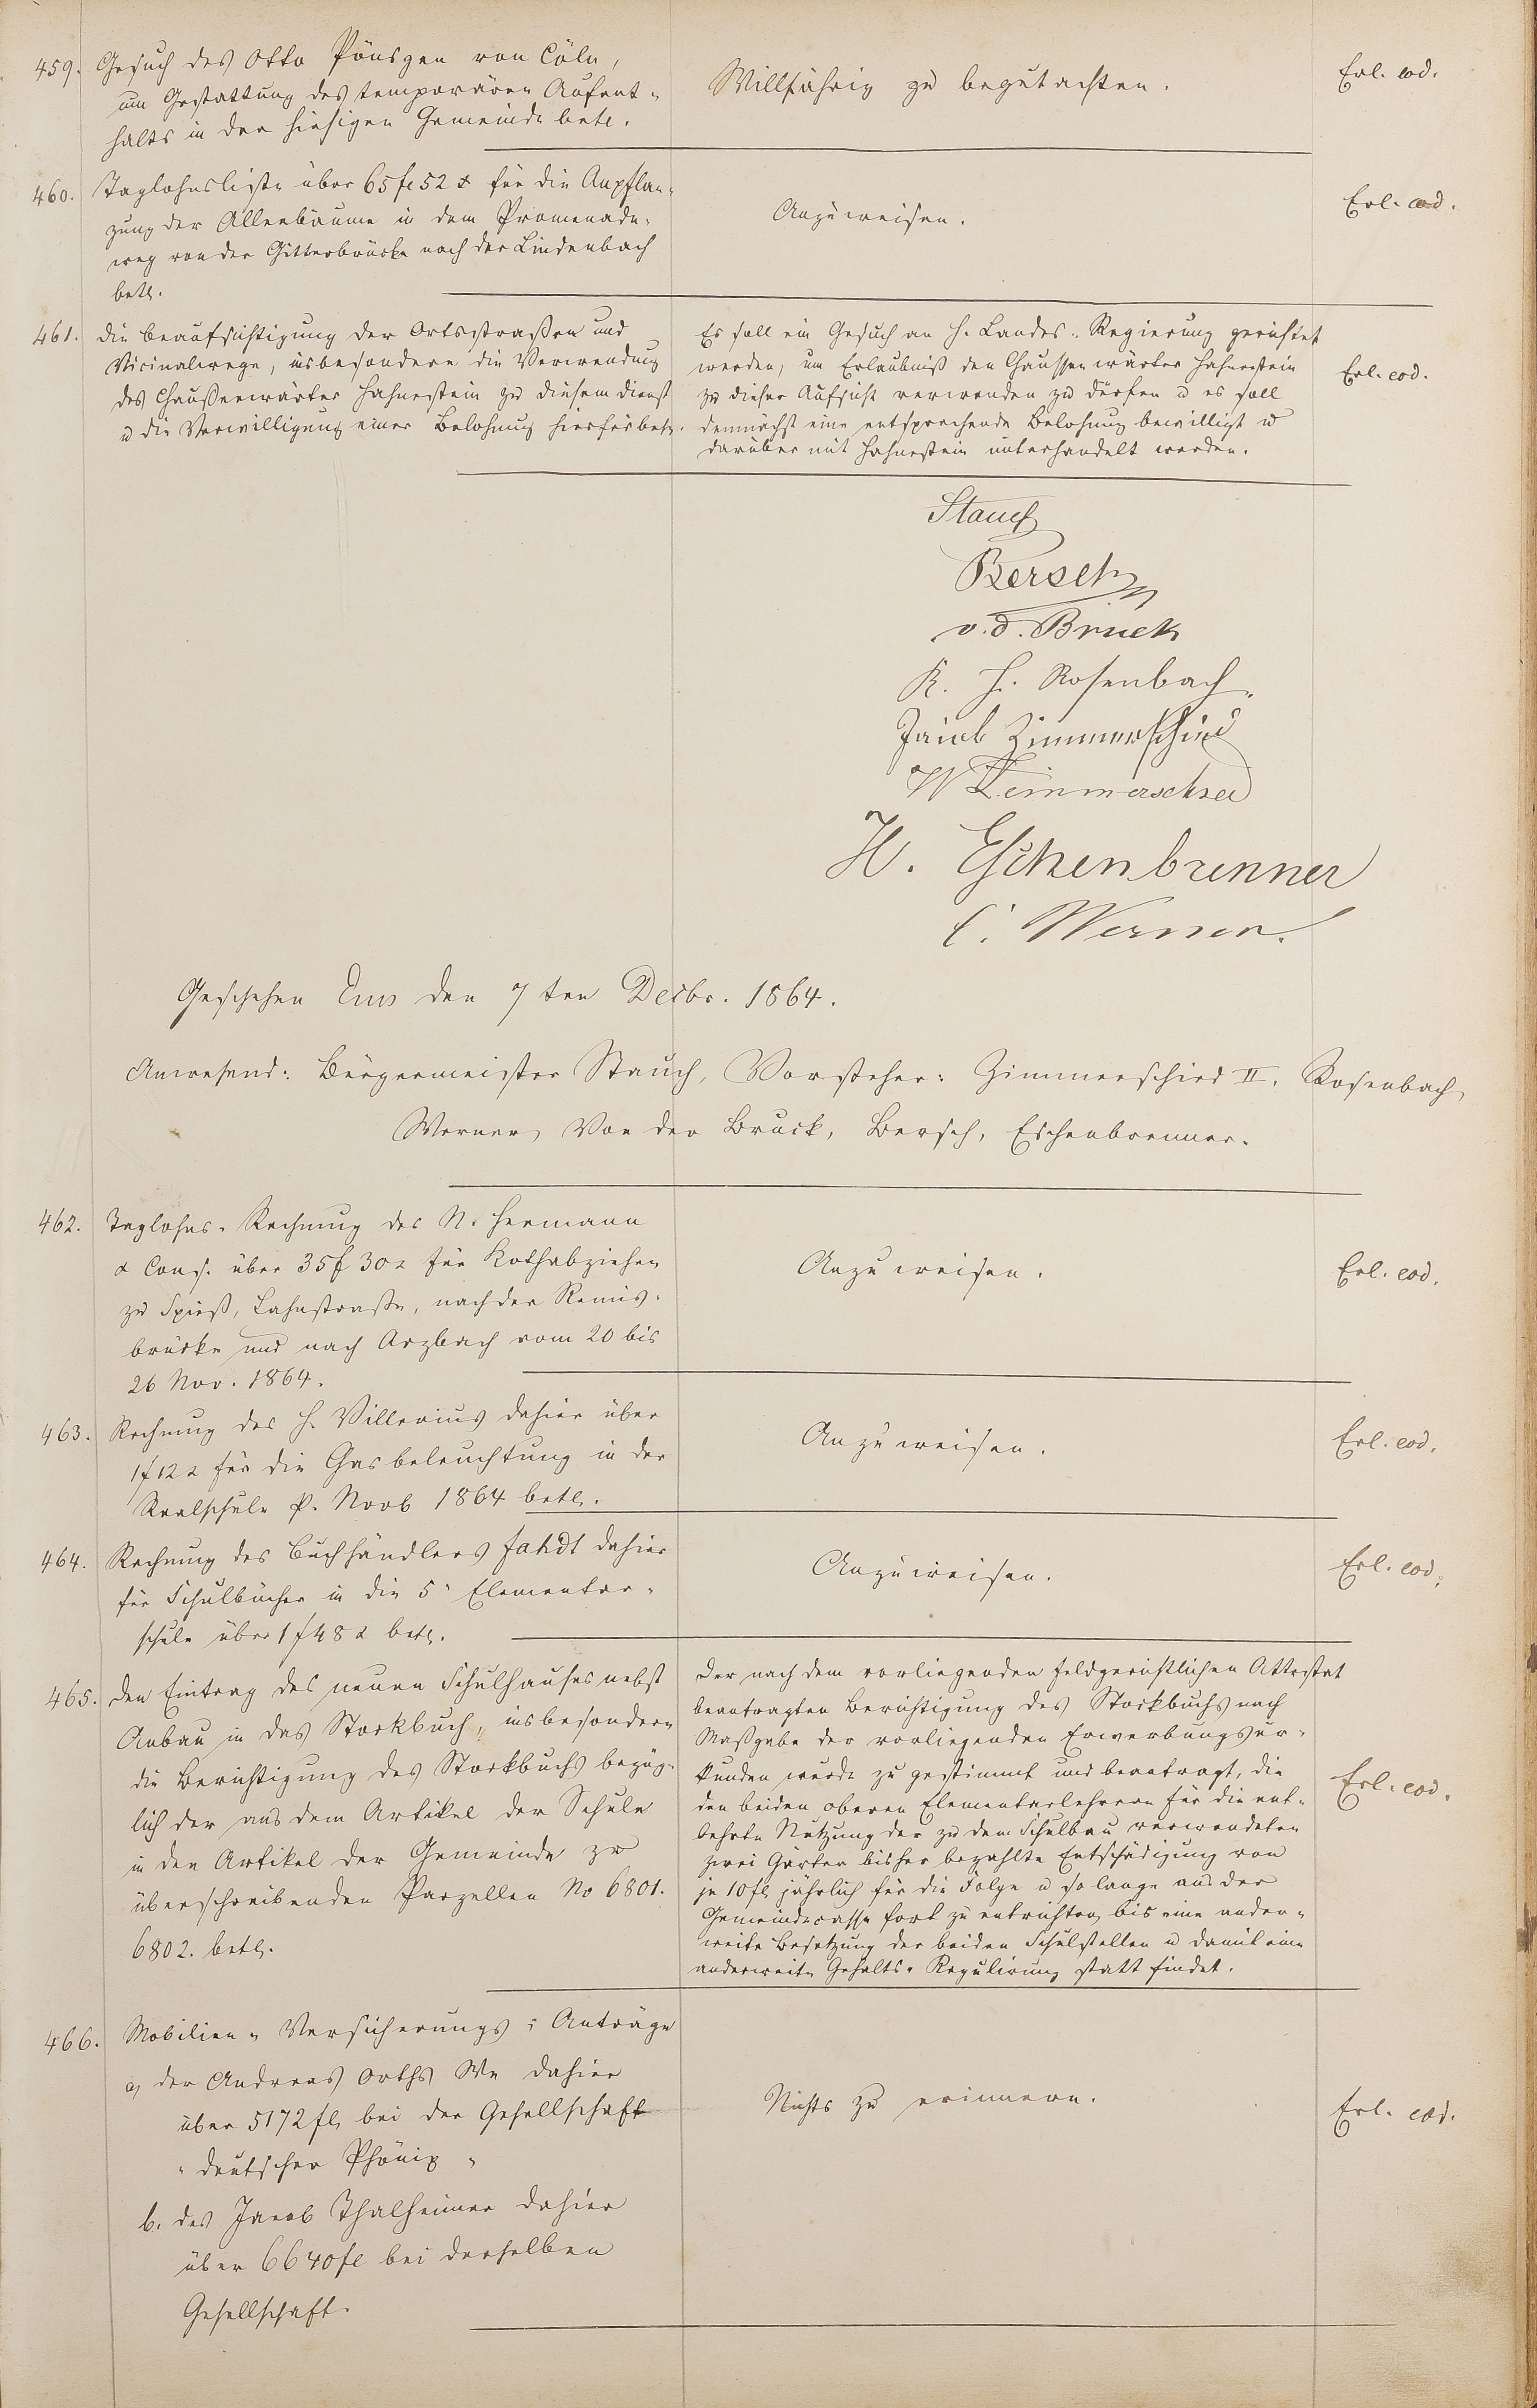 459. Gesuch des Otto Pönsgen von Cöln,
um Gestattung des temporären Aufent-
halts in der hiesigen Gemeinde betr.
Willfährig zu begutachten.
Erl. eod.
460. Taglohnsliste über 65 fl 52 x für die Anpflan-
zung der Alleebäume in dem Promenade-
weg von der Gitterbrücke nach der Lindenbach
betr.
Anzuweisen.
Erl. eod.
461. die Beaufsichtigung der Ortsstraßen und
Vicinalwege, insbesondere die Verwendung
des Chausseewärter Hahnestein zu diesem Dienst
u die Verwilligung einer Belohnung hierfür betr.
Es soll ein Gesuch an H. Landes-Regierung gerichtet
werden, um Erlaubniß den Chausseewärter Hahnestein
zu dieser Aufsicht verwenden zu dürfen u es soll
demnächst eine entsprechende Belohnung bewilligt u
darüber mit Hahnestein unterhandelt werden.
Erl. eod.
Stauch
Bersch
v. d. Bruck
K. H. Rosenbach.
Jacob Zimmerschied
W Zimmerschied
H. Eschenbrenner
C. Werner.
Geschehen Ems den 7ten Decbr. 1864.
Anwesend: Bürgermeister Stauch, Vorsteher: Zimmerschied II, Rosenbach,
Werner, Von der Bruck, Bersch, Eschenbrenner.
462. Taglohns-Rechnung des N. Hermann
& Cons. über 35 f 30 x für Kothabziehen
zu Spieß, Lahnstraße, nach der Remis-
brücke und nach Arzbach vom 20 bis
26 Nov. 1864.
Anzuweisen.
Erl. eod.
463. Rechnung des H. Villerius dahier über
1 f 12 x für die Gasbeleuchtung in der
Realschule p. Novb 1864 betr.
Anzuweisen.
Erl. eod.
464. Rechnung des Buchhändlers Fahdt dahier
für Schulbücher in die 5. Elementar-
schule über 1 f 48 x betr.
Anzuweisen.
Erl. eod.
465. den Eintrag des neuen Schulhauses nebst
Anbau in das Stockbuch, insbesondere
die Berichtigung des Stockbuchs bezüg-
lich der aus dem Artikel der Schule
in den Artikel der Gemeinde zu
überschreibenden Parzellen No 6801.
6802. betr.
Der nach dem vorliegenden feldgerichtlichen Attestat
beantragten Berichtigung des Stockbuchs nach
Maßgabe der vorliegenden Erwerbungsur-
kunden wurde zu gestimmt und beantragt, die
den beiden oberen Elementarlehrern für die ent-
behrte Nutzung der zu dem Schulbau verwendeten
zwei Gärten bisher bezahlte Entschädigung von
je 10 fl jährlich für die Folge u so lange aus der
Gemeindecasse fort zu entrichten, bis eine ander-
weite Besetzung der beiden Schulstellen u damit eine
anderweite Gehalts-Regulirung statt findet.
Erl. eod.
466. Mobilien-Versicherungs-Anträge
a, der Andreas Orths We dahier
über 5172 fl, bei der Gesellschaft
"deutscher Phönix"
b. des Jacob Thalheimer dahier
über 6640 fl bei derselben
Gesellschaft.
Nichts zu erinnern.
Erl. eod.